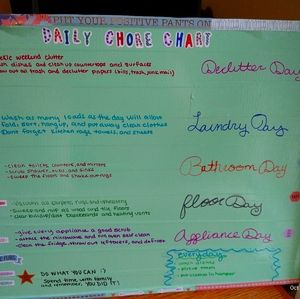 PUT YOUR POSITIVE PANTS ON
DAILY CHORE CHART
weekend clutter
dishes and clean up countertops and surfaces
out all trash and declutter papers (bills, trash, junk mail)
Declutter Day
Wash as many loads as the day will allow
fold, sort, hang up, and put away clean clothes
Dont forget kitchen rags, towels, and sheets
Laundry Day
-clean toilets, counters, and mirrors
-Scrub shower, tubs, and sinks
-Sweep the floors and shake out rugs
Bathroom Day
-Vacuum all carpets, rugs and upholstery
-Sweep and mop all wood and tile floors
-clear window/door and heating vents
floor Day
-give every appliance a good scrub
-attack the microwave and oven and clean
out the fridge, throw out leftovers, and defrost
Appliance Day
DO WHAT YOU CAN!?
Spend time with family
and remember, YOU DID IT!
everyday
wash dishes
Oct